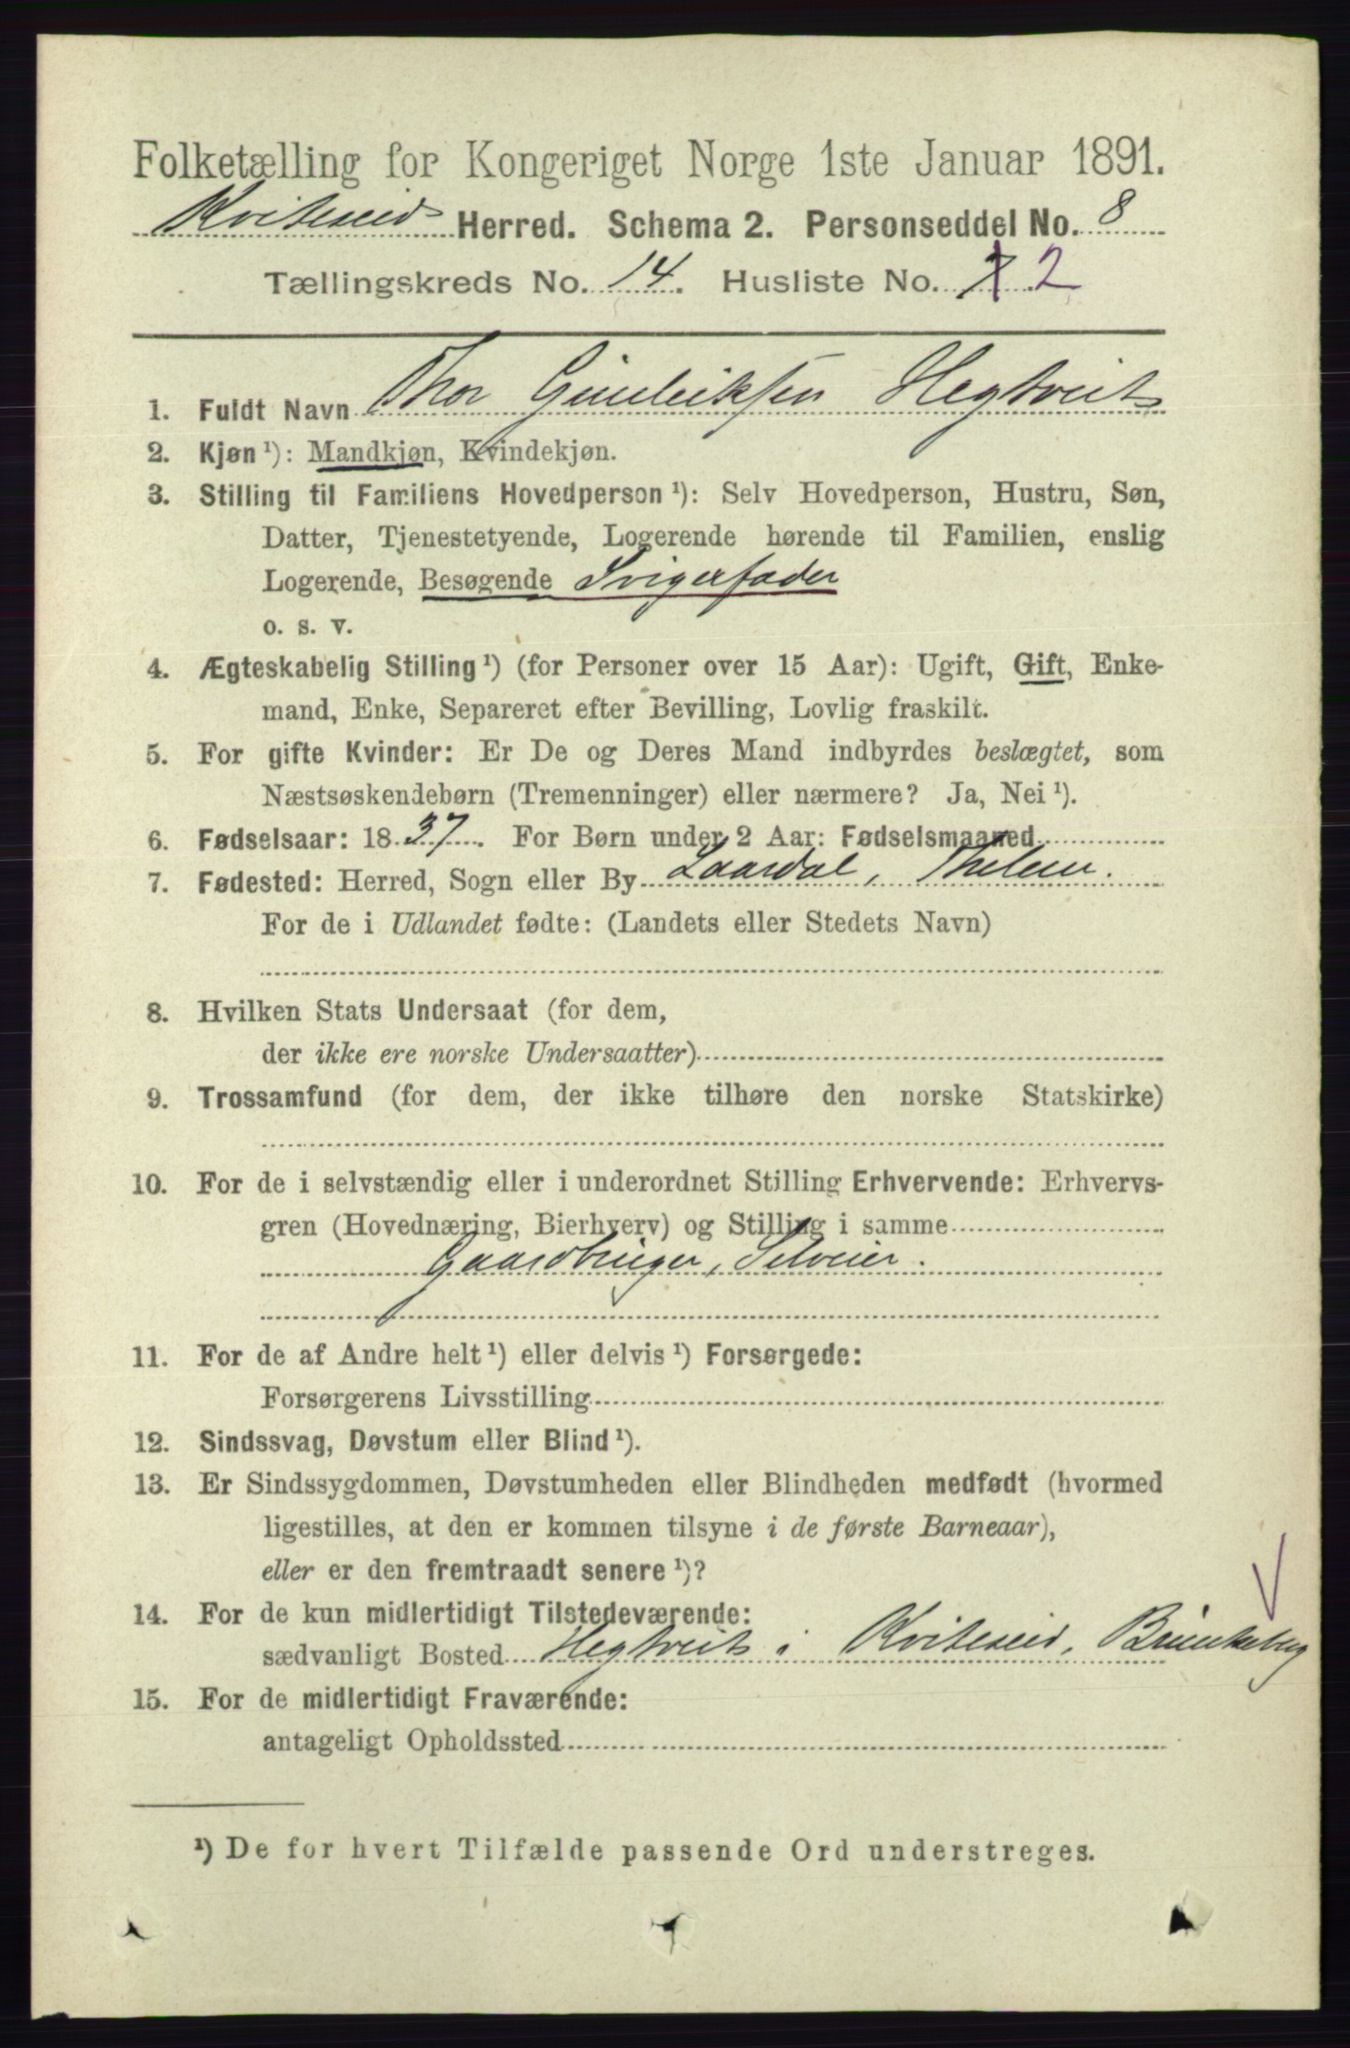 Folketælling for Kongeriget Norge 1ste Januar 1891.
Kviteseid Herred. Schema 2. Personseddel No. 8
Tællingskreds No. 14. Husliste No. 2
1. Fuldt Navn Thor Gunleiksen Hegtveit
2. Kjøn ¹): Mandkjøn, Kvindekjøn.
3. Stilling til Familiens Hovedperson ¹): Selv Hovedperson, Hustru, Søn,
Datter, Tjenestetyende, Logerende hørende til Familien, enslig
Logerende, Besøgende Svigerfader
o. s. v.
4. Ægteskabelig Stilling ¹) (for Personer over 15 Aar): Ugift, Gift, Enke-
mand, Enke, Separeret efter Bevilling, Lovlig fraskilt.
5. For gifte Kvinder: Er De og Deres Mand indbyrdes beslægtet, som
Næstsøskendebørn (Tremenninger) eller nærmere? Ja, Nei ¹).
6. Fødselsaar: 1837. For Børn under 2 Aar: Fødselsmaaned
7. Fødested: Herred, Sogn eller By Laardal, Thelem.
For de i Udlandet fødte: (Landets eller Stedets Navn)
8. Hvilken Stats Undersaat (for dem,
der ikke ere norske Undersaatter)
9. Trossamfund (for dem, der ikke tilhøre den norske Statskirke)
10. For de i selvstændig eller i underordnet Stilling Erhvervende: Erhvervs-
gren (Hovednæring, Bierhverv) og Stilling i samme
Gaardbruger, Selveier.
11. For de af Andre helt ¹) eller delvis ¹) Forsørgede:
Forsørgerens Livsstilling
12. Sindssvag, Døvstum eller Blind ¹).
13. Er Sindssygdommen, Døvstumheden eller Blindheden medfødt (hvormed
ligestilles, at den er kommen tilsyne i de første Barneaar),
eller er den fremtraadt senere ¹)?
14. For de kun midlertidigt Tilstedeværende:
sædvanligt Bosted Hegtveit i Kviteseid, Brunkeberg
15. For de midlertidigt Fraværende:
antageligt Opholdssted
¹) De for hvert Tilfælde passende Ord understreges.